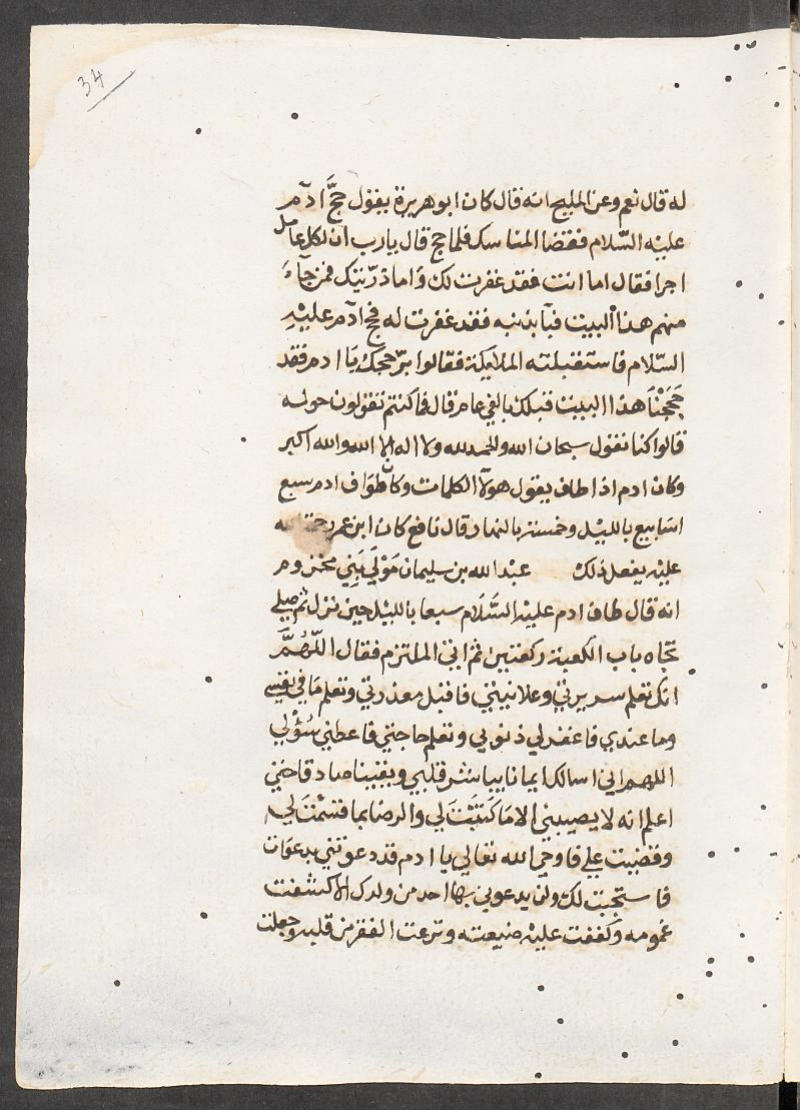 34
له قال نعم وعن المليح انه قال كان ابو هريرة يقول حجَّ ادم
عليه السّلام فقضا المناسك فلما حج قال يارب ان لكل عامل
اجرا فقال اما انت فقد غفرت لك وَاما ذرّيتك فمن جآءَ
منهم هذا البيت فبآ بذنبه فقد غفرت له فحج ادم عليْهِ
السّلام فاستقبلته الملايكة فقالوا برّ حجك يَا ادم فقد
حَجَجْنَا هذا البيت قبلك بالفي عام قال فما كنتم تقولون حوله
قالوا كنا نقول سبحان الله والحمد لله ولا اله الا الله والله اكبر
وكان ادم اذا طاف يقول هولآ الكلمات وكان طوَاف ادم سبع
اسَابيع بالليْل وخمسة بالنهار قال نافع كان ابن عمر رحمة الله
عليْه يفعل ذلك عبْد الله بن سليمان مَوْلَي بَنِي مخزوم
انه قال طاف ادم عليْه السَّلَام سبعا بالليْل حين نزل ثم صلي
تجَاه باب الكعبة ركعتين ثم اتي الملتزم فقال اللّهُمَّ
انك تعلم سريرتي وعلانيتي فاقبل معذرتي وتعلم مَا في نفسي
وما عندي فاغفر لي ذنوبي وتعلم حاجتي فاعطني سُؤْلي
اللهم اني اسالك ايمانا يباشر قلبي ويقينا صادقا حتي
اعلم انه لا يصيبني الا مَا كَتَبْتَ لي والرضا بما قسَمْتَ لي
وقضيت علي فاوحي الله تعالي يا ادم قد دعوتني بدعوَات
فاستجبت لك ولن يدعوني بها احد من ولدك الا كشفت
غمومه وكففت عليْه ضيعته ونزعت الفقر من قلبه وجعلت